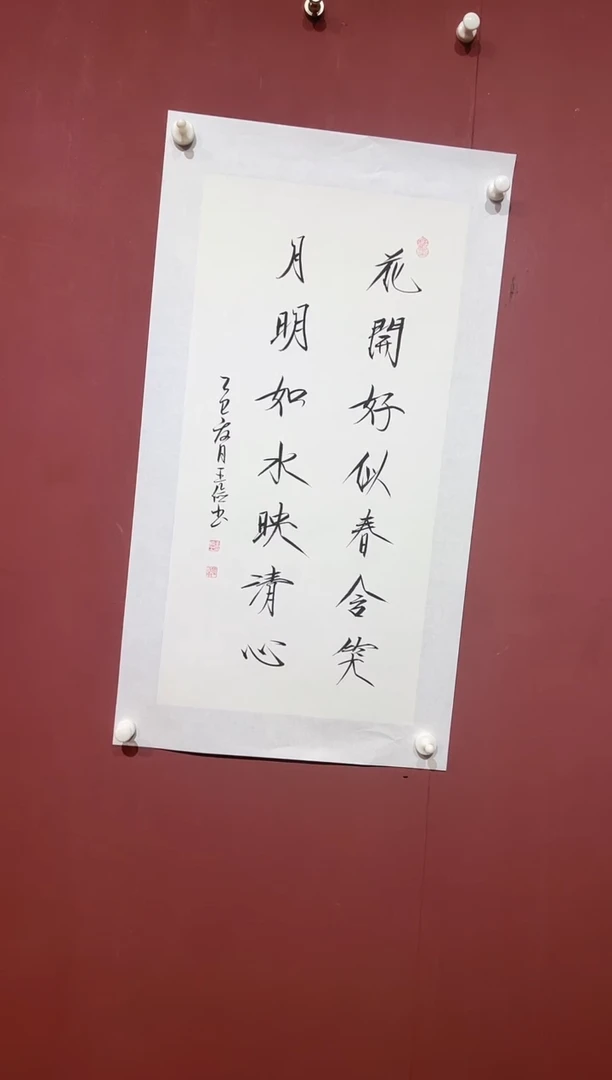 花開好似春含笑
月明如水映清心
乙巳夏月王信书